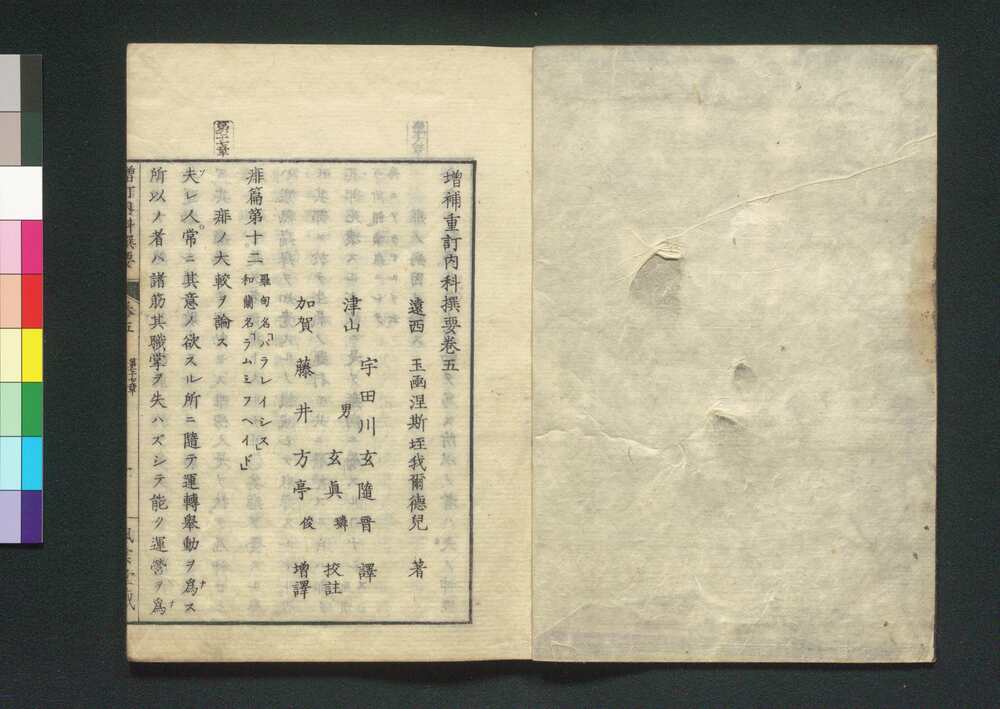 増補重訂内科撰要巻五
遠西 玉函涅斯垤我爾徳兒 著
津山 宇田川玄隨晋 譯
男 玄眞璘 校註
加賀 藤井方亭俊 増譯
痱篇第十二 羅甸名「パラレイシス」
和蘭名「ラムミフヘイド」
其痱ノ大較ヲ論ス
夫レ人常ニ其意ノ欲スル所ニ隨テ運轉舉動ヲ爲ス
所以ノ者ハ諸筋其職掌ヲ失ハズシテ能ク運營ヲ爲